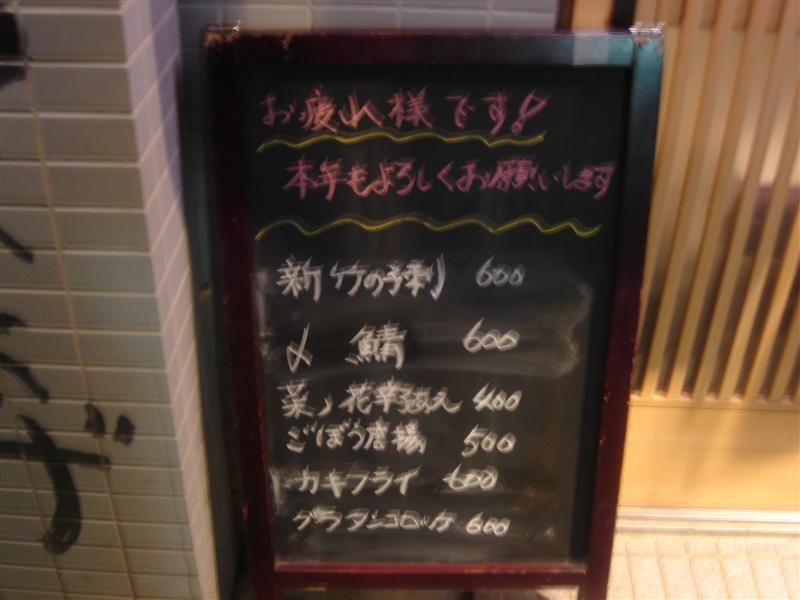 お疲れ様です!
本年もよろしくお願いします
新竹の子刺 600
〆 鯖 600
菜ノ花辛子あえ 400
ごぼう唐揚 500
カキフライ 600
グラタンコロッケ 600